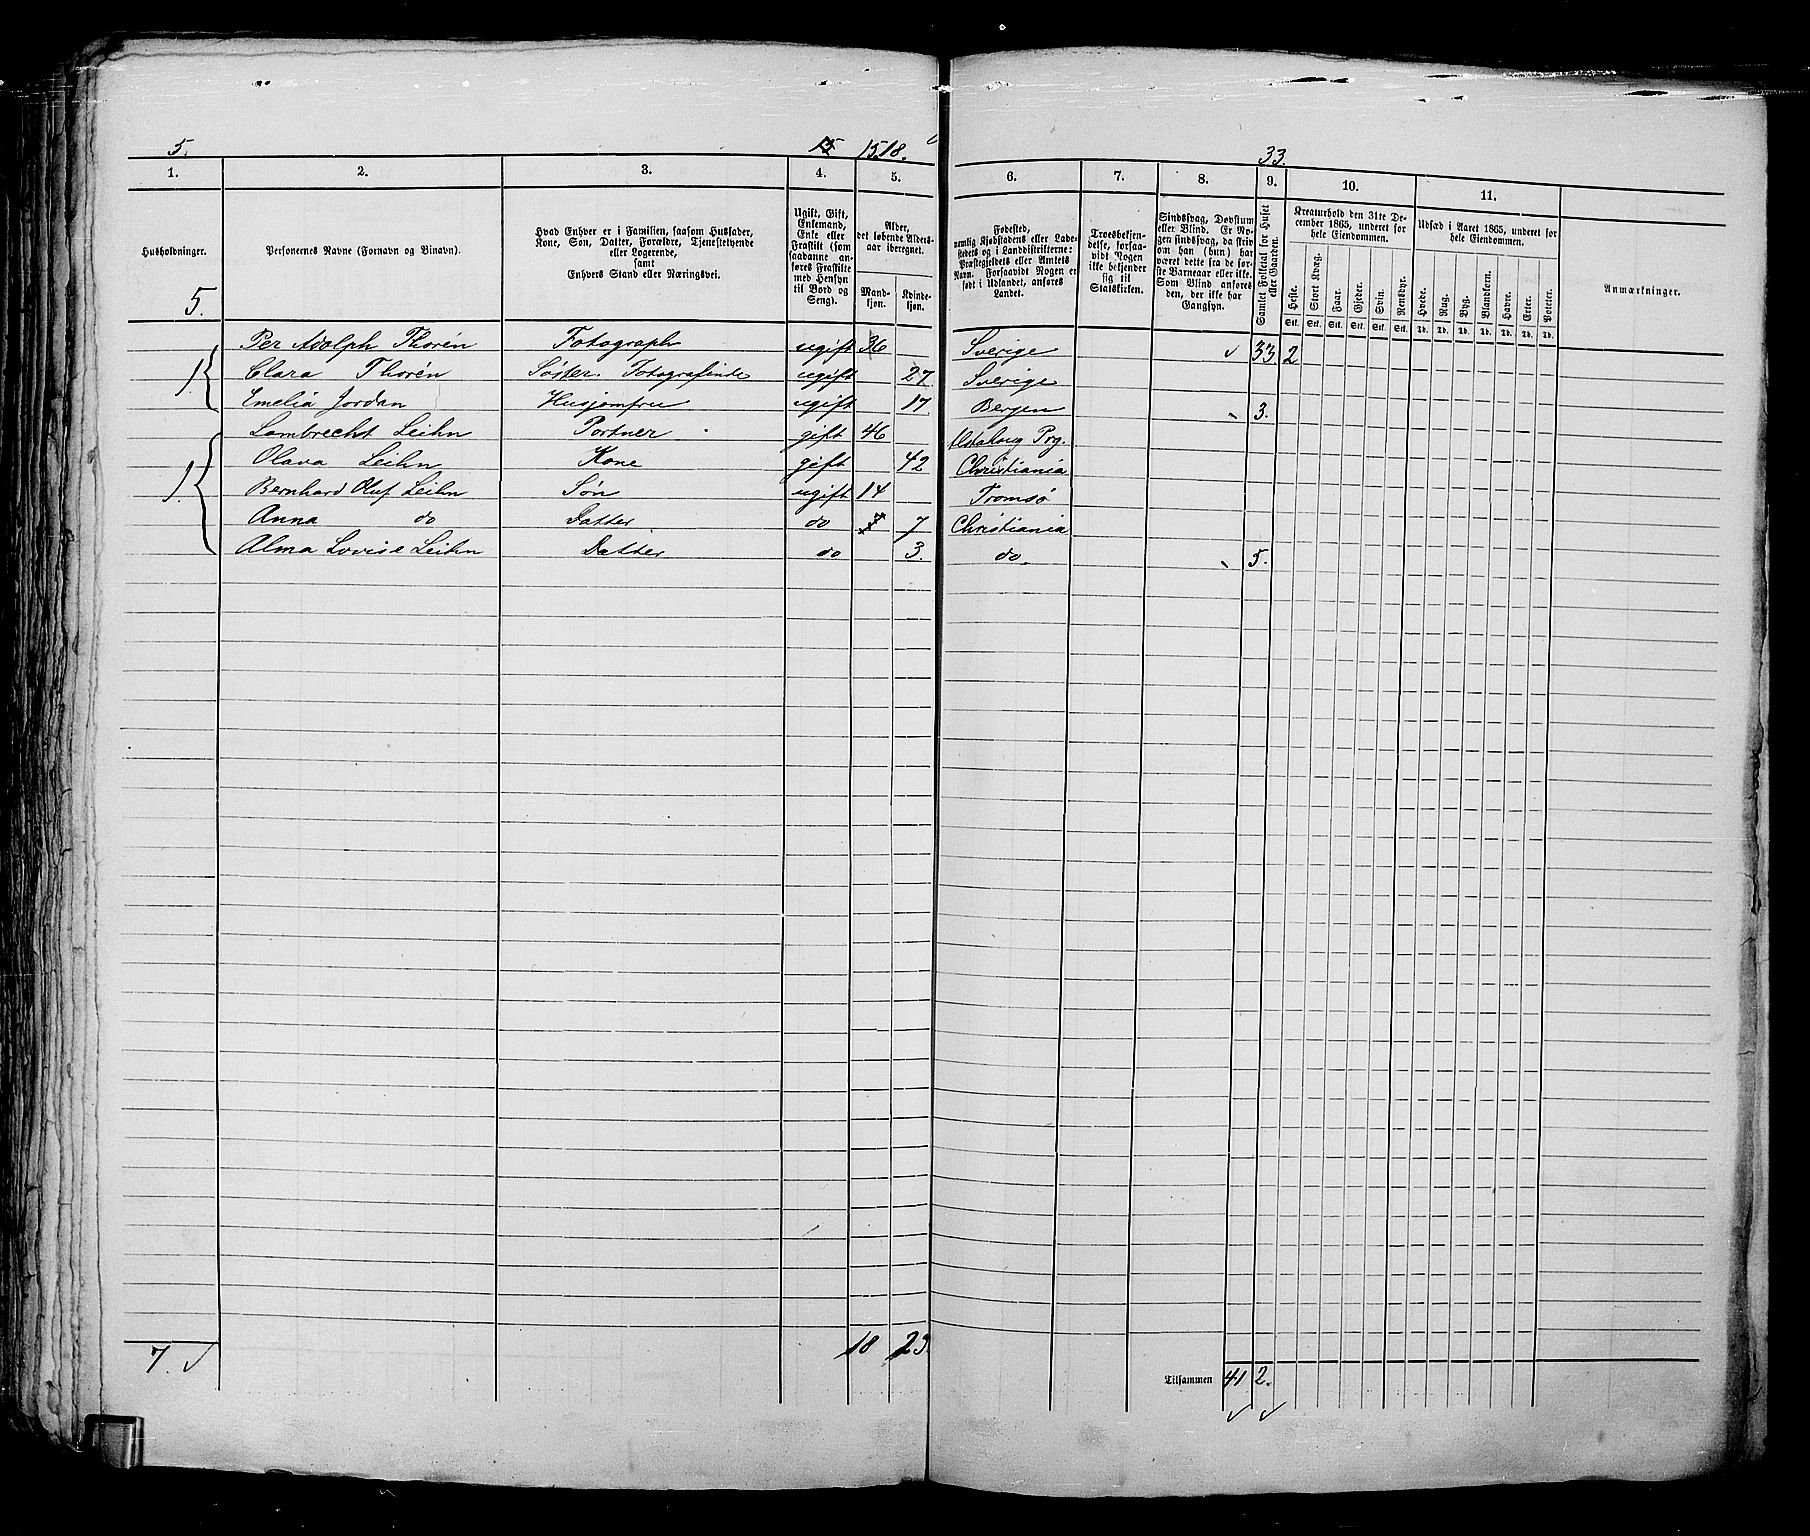 5. 15 18. 33.
1. 2. 3. 4. 5. 6. 7. 8. 9. 10. 11.
Husholdninger.
5.
Personernes Navne (Fornavn og Binavn).
Hvad Enhver er i Familien, saasom Husfader,
Kone, Søn, Datter, Forældre, Tjenestetyende
eller Logerende,
samt
Enhvers Stand eller Næringsvei.
Ugift, Gift,
Enkemand,
Enke eller
Fraskilt (som
saadanne an-
føres Fraskilte
med Hensyn
til Bord og
Seng).
Alder,
det løbende Alders-
aar iberegnet.
Mand-
kjøn.
Kvinde-
kjøn.
Fødested,
nemlig Kjøbstadens eller Lade-
stedets og i Landdistrikterne:
Præstegjeldets eller Amtets
Navn. Forsaavidt Nogen er
født i Udlandet, anføres
Landet.
Troesbekjen-
delse, forsaa-
vidt Nogen
ikke bekjender
sig til
Statskirken.
Sindssvag, Døvstum
eller Blind. Er No-
gen sindssvag, da skriv
om han (hun) har
været dette fra de før-
ste Barneaar eller ikke.
Som Blind anføres
den, der ikke har
Gangsyn.
Samlet Folketal for Huset
eller Gaarden.
Kreaturhold den 31te De-
cember 1865, underet for
hele Eiendommen.
Heste. Stort Kvæg. Faar. Gjeder. Svin. Rensdyr.
Stk. Stk. Stk. Stk. Stk. Stk.
Udsæd i Aaret 1865, underet for
hele Eiendommen.
Hvede. Rug. Byg. Blandkorn. Havre. Erter. Poteter.
Td. Td. Td. Td. Td. Td. Td.
Anmærkninger.
Per Adolph Thorén Fotograph ugift 36 Sverige 33 2
1 Clara Thorén Søster. Fotografinde ugift 27 Sverige
Emelia Jordan Husjomfru ugift 17 Bergen 3.
Lambrecht Leihn Portner gift 46 Prg.
Olava Leihn Kone gift 42 Christiania
1. Bernhard Oluf Leihn Søn ugift 14 Tromsø
Anna do Datter do 7 Christiania
Alma Lovise Leihn Datter do 3. do. 5.
7. 18 23.
Tilsammen 41 2.